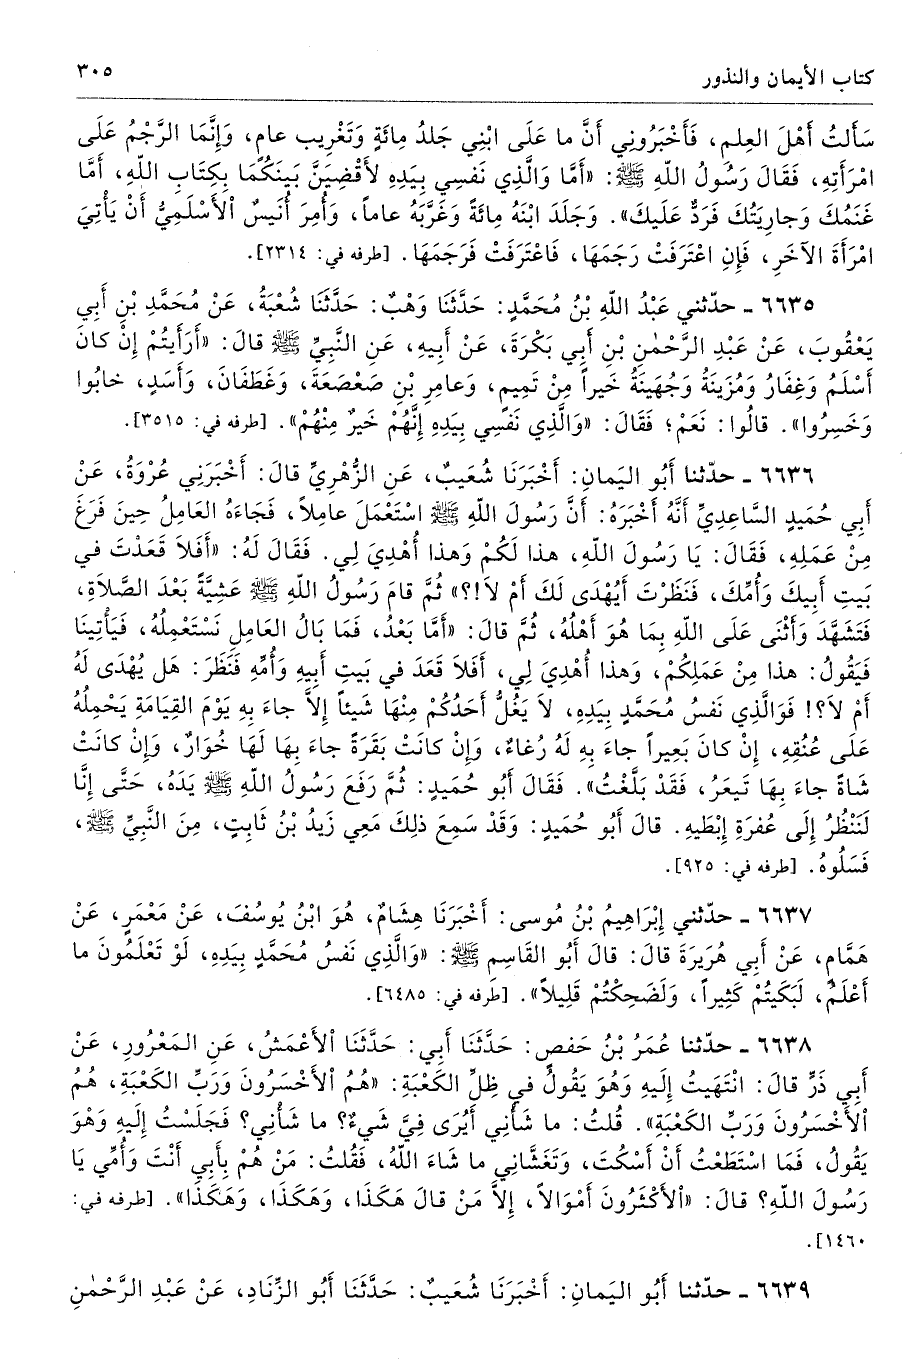 كتاب الأيمان والنذور ٣٠٥
سَأَلتُ أَهْلَ العِلمِ، فَأَخْبَرُونِي أَنَّ ما عَلَى ابْنِي جَلدُ مِائَةٍ وَتَغْرِيب عامٍ، وَإِنَّمَا الرَّجْمُ عَلَى
امْرَأَتِهِ، فَقَالَ رَسُولُ اللّهِ ﷺ: «أَمَّا وَالَّذِي نَفسِي بِيَدِهِ لأَقْضِيَنَّ بَينَكُمَا بِكِتَابِ اللّهِ، أَمَّا
غَنَمُكَ وَجارِيَتُكَ فَرَدٌّ عَلَيكَ». وَجَلَدَ ابْنَهُ مِائَةً وَغَرَّبَهُ عاماً، وَأُمِرَ أُنَيسٌ الأَسْلَمِيُّ أَنْ يَأْتِيَ
امْرَأَةَ الآخَرِ، فَإِنِ اعْتَرَفَتْ رَجَمَهَا، فَاعْتَرَفَتْ فَرَجَمَهَا. [طرفه في: ٢٣١٤].
٦٦٣٥ ـ حدّثني عَبْدُ اللّهِ بْنُ مُحَمَّدٍ: حَدَّثَنَا وَهْبٌ: حَدَّثَنَا شُعْبَةُ، عَنْ مُحَمَّدِ بْنِ أَبِي
يَعْقُوبَ، عَنْ عَبْدِ الرَّحْمٰنِ بْنِ أَبِي بَكْرَةَ، عَنْ أَبِيهِ، عَنِ النَّبِيِّ ﷺ قالَ: «أَرَأَيتُمْ إِنْ كانَ
أَسْلَمُ وَغِفَارُ وَمُزَينَةُ وَجُهَينَةُ خَيراً مِنْ تَمِيمٍ، وَعامِرِ بْنِ صَعْصَعَةَ، وَغَطَفَانَ، وَأَسَدٍ، خابُوا
وَخَسِرُوا». قالُوا: نَعَمْ؛ فَقَالَ: «وَالَّذِي نَفسِي بِيَدِهِ إِنَّهُمْ خَيرٌ مِنْهُمْ». [طرفه في: ٣٥١٥].
٦٦٣٦ ـ حدّثنا أَبُو اليَمانِ: أَخْبَرَنَا شُعَيبٌ، عَنِ الزُّهْرِيِّ قالَ: أَخْبَرَنِي عُرْوَةُ، عَنْ
أَبِي حُمَيدٍ السَّاعِدِيِّ أَنَّهُ أَخْبَرَهُ: أَنَّ رَسُولَ اللّهِ ﷺ اسْتَعْمَلَ عامِلاً، فَجَاءَهُ العَامِلُ حِينَ فَرَغَ
مِنْ عَمَلِهِ، فَقَالَ: يَا رَسُولَ اللّهِ، هذا لَكُمْ وَهذا أُهْدِيَ لِي. فَقَالَ لَهُ: «أَفَلاَ قَعَدْتَ في
بَيتِ أَبِيكَ وَأُمِّكَ، فَنَظَرْتَ أَيُهْدَى لَكَ أَمْ لاَ!؟» ثُمَّ قامَ رَسُولُ اللّهِ ﷺ عَشِيَّةً بَعْدَ الصَّلاَةِ،
فَتَشَهَّدَ وَأَثْنَى عَلَى اللّهِ بِمَا هُوَ أَهْلُهُ، ثُمَّ قالَ: «أَمَّا بَعْدُ، فَمَا بَالُ العَامِلِ نَسْتَعْمِلُهُ، فَيَأْتِينَا
فَيَقُولُ: هذا مِنْ عَمَلِكُمْ، وَهذا أُهْدِيَ لِي، أَفَلاَ قَعَدَ في بَيتِ أَبِيهِ وَأُمِّهِ فَنَظَرَ: هَل يُهْدَى لَهُ
أَمْ لاَ؟! فَوَالَّذِي نَفسُ مُحَمَّدٍ بِيَدِهِ، لاَ يَغُلُّ أَحَدُكُمْ مِنْهَا شَيئاً إِلاَّ جاءَ بِهِ يَوْمَ القِيَامَةِ يَحْمِلُهُ
عَلَى عُنُقِهِ، إِنْ كانَ بَعِيراً جاءَ بِهِ لَهُ رُغاءٌ، وَإِنْ كانَتْ بَقَرَةً جاءَ بِهَا لَهَا خُوَارٌ، وَإِنْ كانَتْ
شَاةً جاءَ بِهَا تَيعَرُ، فَقَدْ بَلَّغْتُ». فَقَالَ أَبُو حُمَيدٍ: ثُمَّ رَفَعَ رَسُولُ اللّهِ ﷺ يَدَهُ، حَتَّى إِنَّا
لَنَنْظُرُ إِلَى عُفرَةِ إِبْطَيهِ. قالَ أَبُو حُمَيدٍ: وَقَدْ سَمِعَ ذلِكَ مَعِي زَيدُ بْنُ ثَابِتٍ، مِنَ النَّبِيِّ ﷺ،
فَسَلُوهُ. [طرفه في: ٩٢٥].
٦٦٣٧ ـ حدّثني إِبْرَاهِيمُ بْنُ مُوسى: أَخْبَرَنَا هِشَامٌ، هُوَ ابْنُ يُوسُفَ، عَنْ مَعْمَرٍ، عَنْ
هَمَّامٍ، عَنْ أَبِي هُرَيرَةَ قالَ: قالَ أَبُو القَاسِمِ ﷺ: «وَالَّذِي نَفسُ مُحَمَّدٍ بِيَدِهِ، لَوْ تَعْلَمُونَ ما
أَعْلَمُ، لَبَكَيتُمْ كَثِيراً، وَلَضَحِكْتُمْ قَلِيلاً». [طرفه في: ٦٤٨٥].
٦٦٣٨ ـ حدّثنا عُمَرُ بْنُ حَفصٍ: حَدَّثَنَا أَبِي: حَدَّثَنَا الأَعْمَشُ، عَنِ المَعْرُورِ، عَنْ
أَبِي ذَرٍّ قالَ: انْتَهَيتُ إِلَيهِ وَهُوَ يَقُولُ في ظِلِّ الكَعْبَةِ: «هُمُ الأَخْسَرُونَ وَرَبِّ الكَعْبَةِ، هُمُ
الأَخْسَرُونَ وَرَبِّ الكَعْبَةِ». قُلتُ: ما شَأْنِي أَيُرَى فِيَّ شَيءٌ؟ ما شَأْنِي؟ فَجَلَسْتُ إِلَيهِ وَهْوَ
يَقُولُ، فَمَا اسْتَطَعْتُ أَنْ أَسْكُتَ، وَتَغَشَّانِي ما شَاءَ اللّهُ، فَقُلتُ: مَنْ هُمْ بِأَبِي أَنْتَ وَأُمِّي يَا
رَسُولَ اللّهِ؟ قالَ: «الأَكْثَرُونَ أَمْوَالاً، إِلاَّ مَنْ قالَ هَكَذَا، وَهَكَذَا، وَهَكَذَا». [طرفه في:
١٤٦٠].
٦٦٣٩ ـ حدّثنا أَبُو اليَمانِ: أَخْبَرَنَا شُعَيبٌ: حَدَّثَنَا أَبُو الزِّنَادِ، عَنْ عَبْدِ الرَّحْمٰنِ